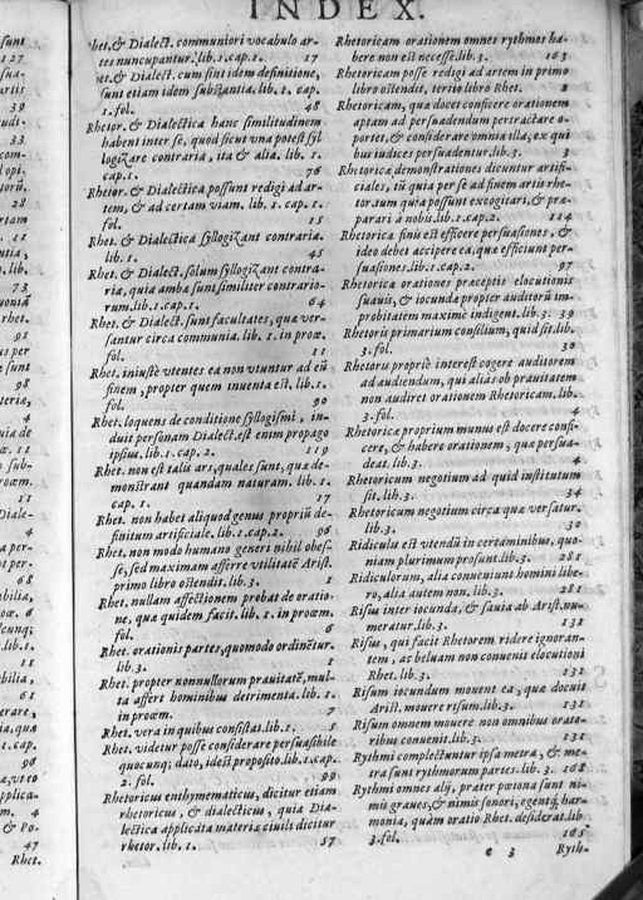 INDEX.
sunt
127
sua-
artis
39
tudi-
33
com-
opi,
torū.
28
rtam
11
ntia,
lib.
73
uonia
rhet.
91
us per
sunt
98
teria,
4
uia de
11
sub-
roœm.
11
Diale-
4
a per-
t per.
68
ibilia,
oœ. 6
cunq;
lib.1.
11
bilia,
61
erare,
ia,quæ
t.cap.
96
a,vt eo
pplica-
m. 4
& Po-
47
Rhet.
Rhet.& Dialect. communiori vocabulo ar-
tes nuncupantur. lib.1.cap.1. 17
Rhet.& Dialect. cum sint idem definitione,
sunt etiam idem substantia. lib. 1. cap.
1.fol. 48
Rhetor. & Dialectica hanc similitudinem
habent inter se, quod sicut vna potest syl
logizare contraria, ita & alia. lib. 1.
cap.1. 76
Rhetor. & Dialectica possunt redigi ad ar-
tem, & ad certam viam. lib. 1. cap. 1.
fol. 15
Rhet. & Dialectica syllogizant contraria.
lib. 1. 45
Rhet. & Dialect. solum syllogizant contra-
ria, quia ambæ sunt similiter contrario-
rum.lib.1.cap.1. 64
Rhet. & Dialect. sunt facultates, quæ ver-
santur circa communia. lib. 1. in proœ.
fol. 11
Rhet. iniustè vtentes ea non vtuntur ad eū
finem, propter quem inuenta est. lib.1.
fol. 90
Rhet. loquens de conditione syllogismi, in-
duit personam Dialect.est enim propago
ipsius. lib.1.cap. 2. 119
Rhet. non est talis ars, quales sunt, quæ de-
monstrant quandam naturam. lib. 1.
cap. 1. 17
Rhet. non habet aliquod genus propriū de-
finitum artificiale. lib.1.cap.2. 96
Rhet. non modo humano generi nihil obes-
se, sed maximam afferre vtilitatē Arist.
primo libro ostendit. lib.3. 1
Rhet. nullam affectionem probat de oratio-
ne, quæ quidem facit. lib. 1. in proœm.
fol. 6
Rhet. orationis partes, quomodo ordinētur.
lib.3. 1
Rhet. propter nonnullorum prauitatē, mul-
ta affert hominibus detrimenta. lib. 1.
in proœm. 7
Rhet. vera in quibus consistat.lib.1. 5
Rhet. videtur posse considerare persuasibile
quocunq; dato, idest proposito.lib.1.cap.
2. fol. 99
Rhetoricus enthymematicus, dicitur etiam
rhetoricus, & dialecticus, quia Dia-
lectica applicata materiæ ciuili dicitur
rhetor. lib. 1. 57
Rhetoricam orationem omnes rythmos ha-
bere non est necesse.lib.3. 163
Rhetoricam posse redigi ad artem in primo
libro ostendit, tertio libro Rhet. 2
Rhetoricam, quæ docet conficere orationem
aptam ad persuadendum pertractare o-
portet,& considerare omnia illa; ex qui
bus iudices persuadentur.lib.3. 3
Rhetoricæ demonstrationes dicuntur artifi-
ciales, tū quia per se ad finem artis rhe-
tor.tum quia possunt excogitari,& præ-
parari à nobis.lib.1.cap.2. 114
Rhetoricæ finis est efficere persuasiones, &
ideo debet accipere ea, quæ efficiunt per-
suasiones.lib.1.cap.2. 97
Rhetoricæ orationes præceptis elocutionis
suauis, & iocundæ propter auditorū im-
probitatem maximè indigent.lib.3. 39
Rhetoris primarium consilium, quid sit.lib.
3.fol. 30
Rhetoris propriè interest cogere auditorem
ad audiendum, qui alias ob prauitatem
non audiret orationem Rhetoricam.lib.
3.fol. 4
Rhetoricæ proprium munus est docere confi-
cere, & habere orationem, quæ persua-
deat.lib.3. 4
Rhetoricum negotium ad quid institutum
sit.lib.3. 34
Rhetoricum negotium circa quæ versatur.
lib.3. 30
Ridiculis est vtendū in certaminibus, quo-
niam plurimum prosunt.lib.3. 281
Ridiculorum, alia conueniunt homini libe-
ro, alia autem non.lib.3. 281
Risus inter iocunda, & suauia ab Arist.nu-
meratur.lib.3. 131
Risus, qui facit Rhetorem ridere ignoran-
tem, ac beluam non conuenit elocutioni
Rhet. lib.3. 131
Risum iocundum mouent ea, quæ docuit
Arist. mouere risum.lib.3. 131
Risum omnem mouere non omnibus orato-
ribus conuenit.lib.3. 131
Rythmi complectuntur ipsa metra, & me-
tra sunt rythmorum partes.lib.3. 168
Rythmi omnes alij, præter pæona sunt ni-
mis graues,& nimis sonori, egentq; har-
monia, quam oratio Rhet. desiderat.lib
3.fol. 165
e 3 Ryth-